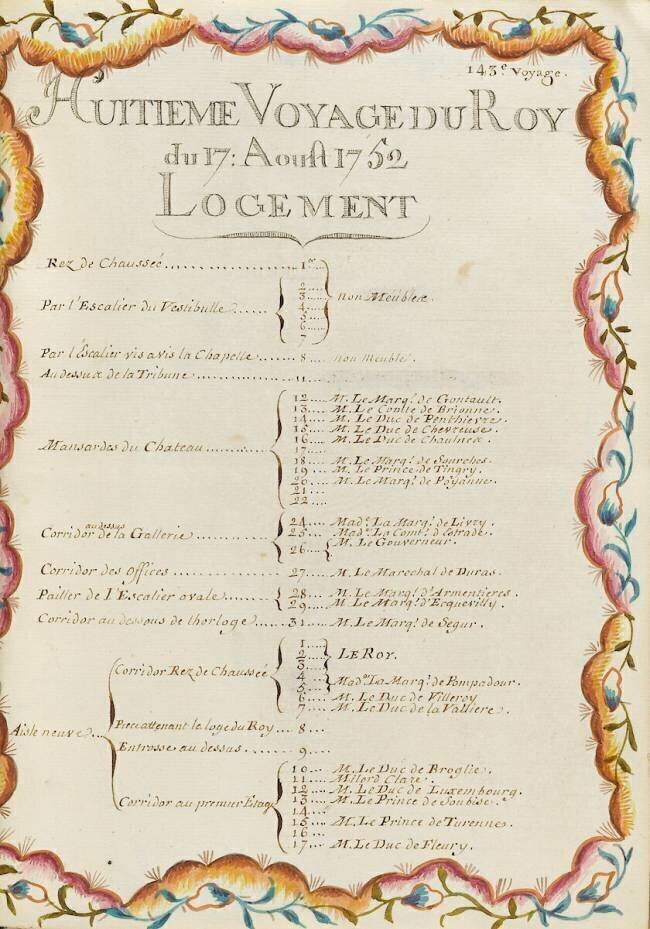 143.e Voyage.
HUITIEME VOYAGE DU ROY
du 17: Aoust 1752
LOGEMENT
Rez de Chaussée............ 1er....
2....
Par l'Escalier du Vestibulle...... 3.... non Meublés.
4....
5....
6....
7
Par l'Escalier vis a vis la Chapelle...... 8.... non meublé.
Au dessus de la Tribune............ 11....
12.... M. Le Marq.s de Gontault.
13.... M. Le Comte de Brionne.
14.... M. Le Duc de Penthievre.
15.... M. Le Duc de Chevreuse.
16.... M. Le Duc de Chaulnes.
Mansardes du Chateau............ 17....
18.... M. Le Marq.s de Sourches.
19.... M. Le Prince de Tingry.
20.... M. Le Marq.s de Poyanne.
21....
22....
24.... Mad.e La Marq.e de Livry.
Corridor au dessus de la Gallerie............ 25.... Mad.e La Comt.e d'Estrade.
26.... M. Le Gouverneur.
Corridor des Offices............ 27.... M. Le Marechal de Duras.
Pailler de l'Escalier ovale...... 28.... M. Le Marq.s d'Armentieres
29.... M. Le Marq.s d'Ecquevilly.
Corridor au dessous de lhorloge.... 31.... M. Le Marq.s de Segur.
1....
2.... LE ROY.
Corridor Rez de Chaussée 3....
4....
5.... Mad.e La Marq.e de Pompadour.
6.... M. Le Duc de Villeroy
7.... M. Le Duc de la Valliere.
Aisle neuve.... Piece attenant la loge du Roy.... 8....
Entresse au dessus....... 9....
10.... M. Le Duc de Broglie.
11.... Milord Clare.
12.... M. Le Duc de Luxembourg.
Corridor au premier Etag 13.... M. Le Prince de Soubise.
14....
15.... M. Le Prince de Turenne.
16....
17.... M. Le Duc de Fleury.